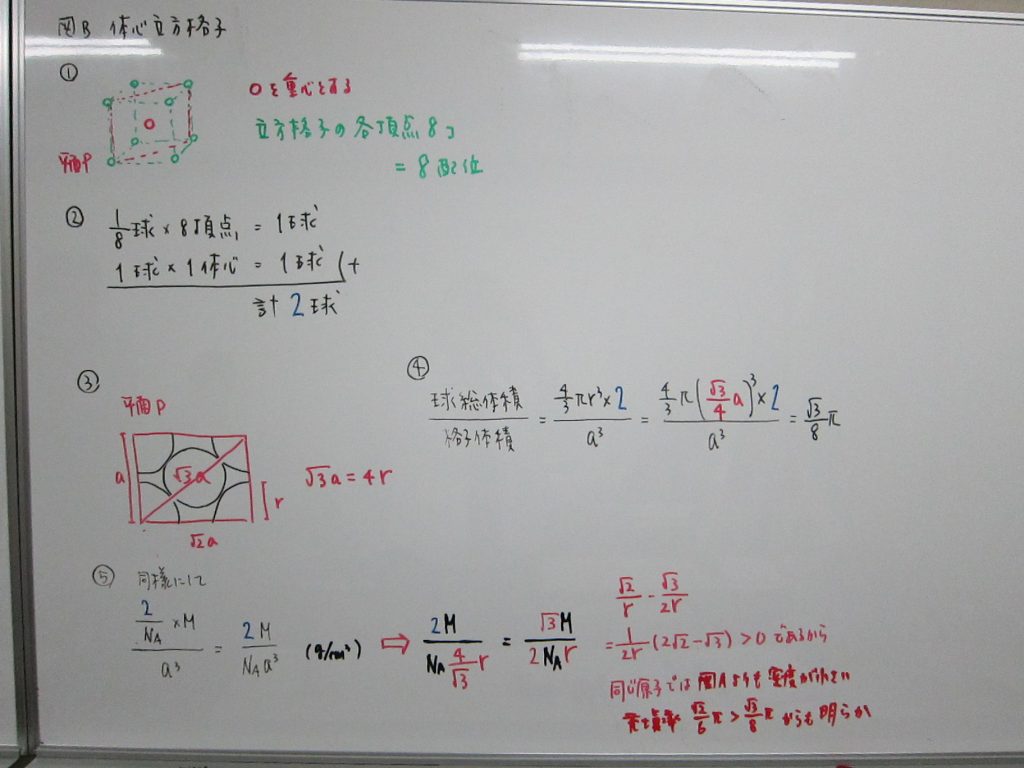 図B 体心立方格子
①
○を重心とする
立方格子の各頂点8コ
= 8配位
平面P
②
1/8球×8頂点 = 1球
1球×1体心 = 1球 (+
計 2球
③
平面P
a
√3a
r
√2a
√3a = 4r
④
球総体積/格子体積 = (4/3 πr³×2)/a³ = (4/3 π(√3/4 a)³×2)/a³ = √3/8 π
⑤ 同様にして
(2/NA ×M)/a³ = 2M/(NA a³) (g/cm³) ⇨ 2M/(NA 4/√3 r) = √3M/(2NA r)
√2/r - √3/2r
= 1/2r (2√2-√3) > 0 であるから
同じ原子では図Aよりも密度が小さい
充填率 √2/6 π > √3/8 π からも明らか